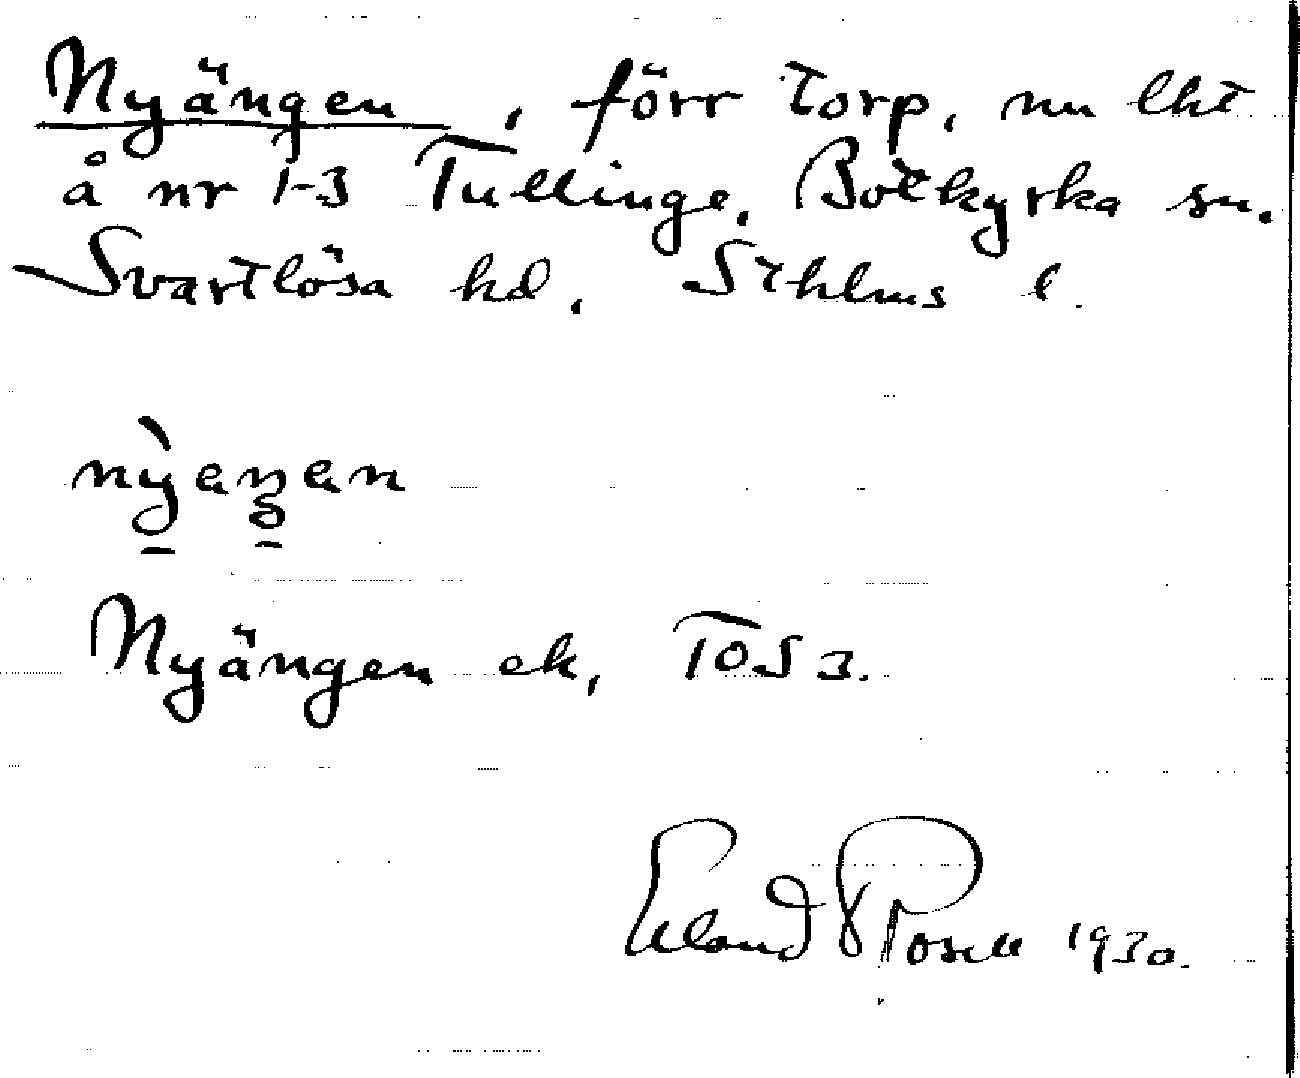 Nyängen, förr torp, nu lht
å nr 1-3 Tullinge. Botkyrka sn.
Svartlösa hd. Sthlms l.
Nyängen ek, TOS 3.
Erland Rosell 1930.